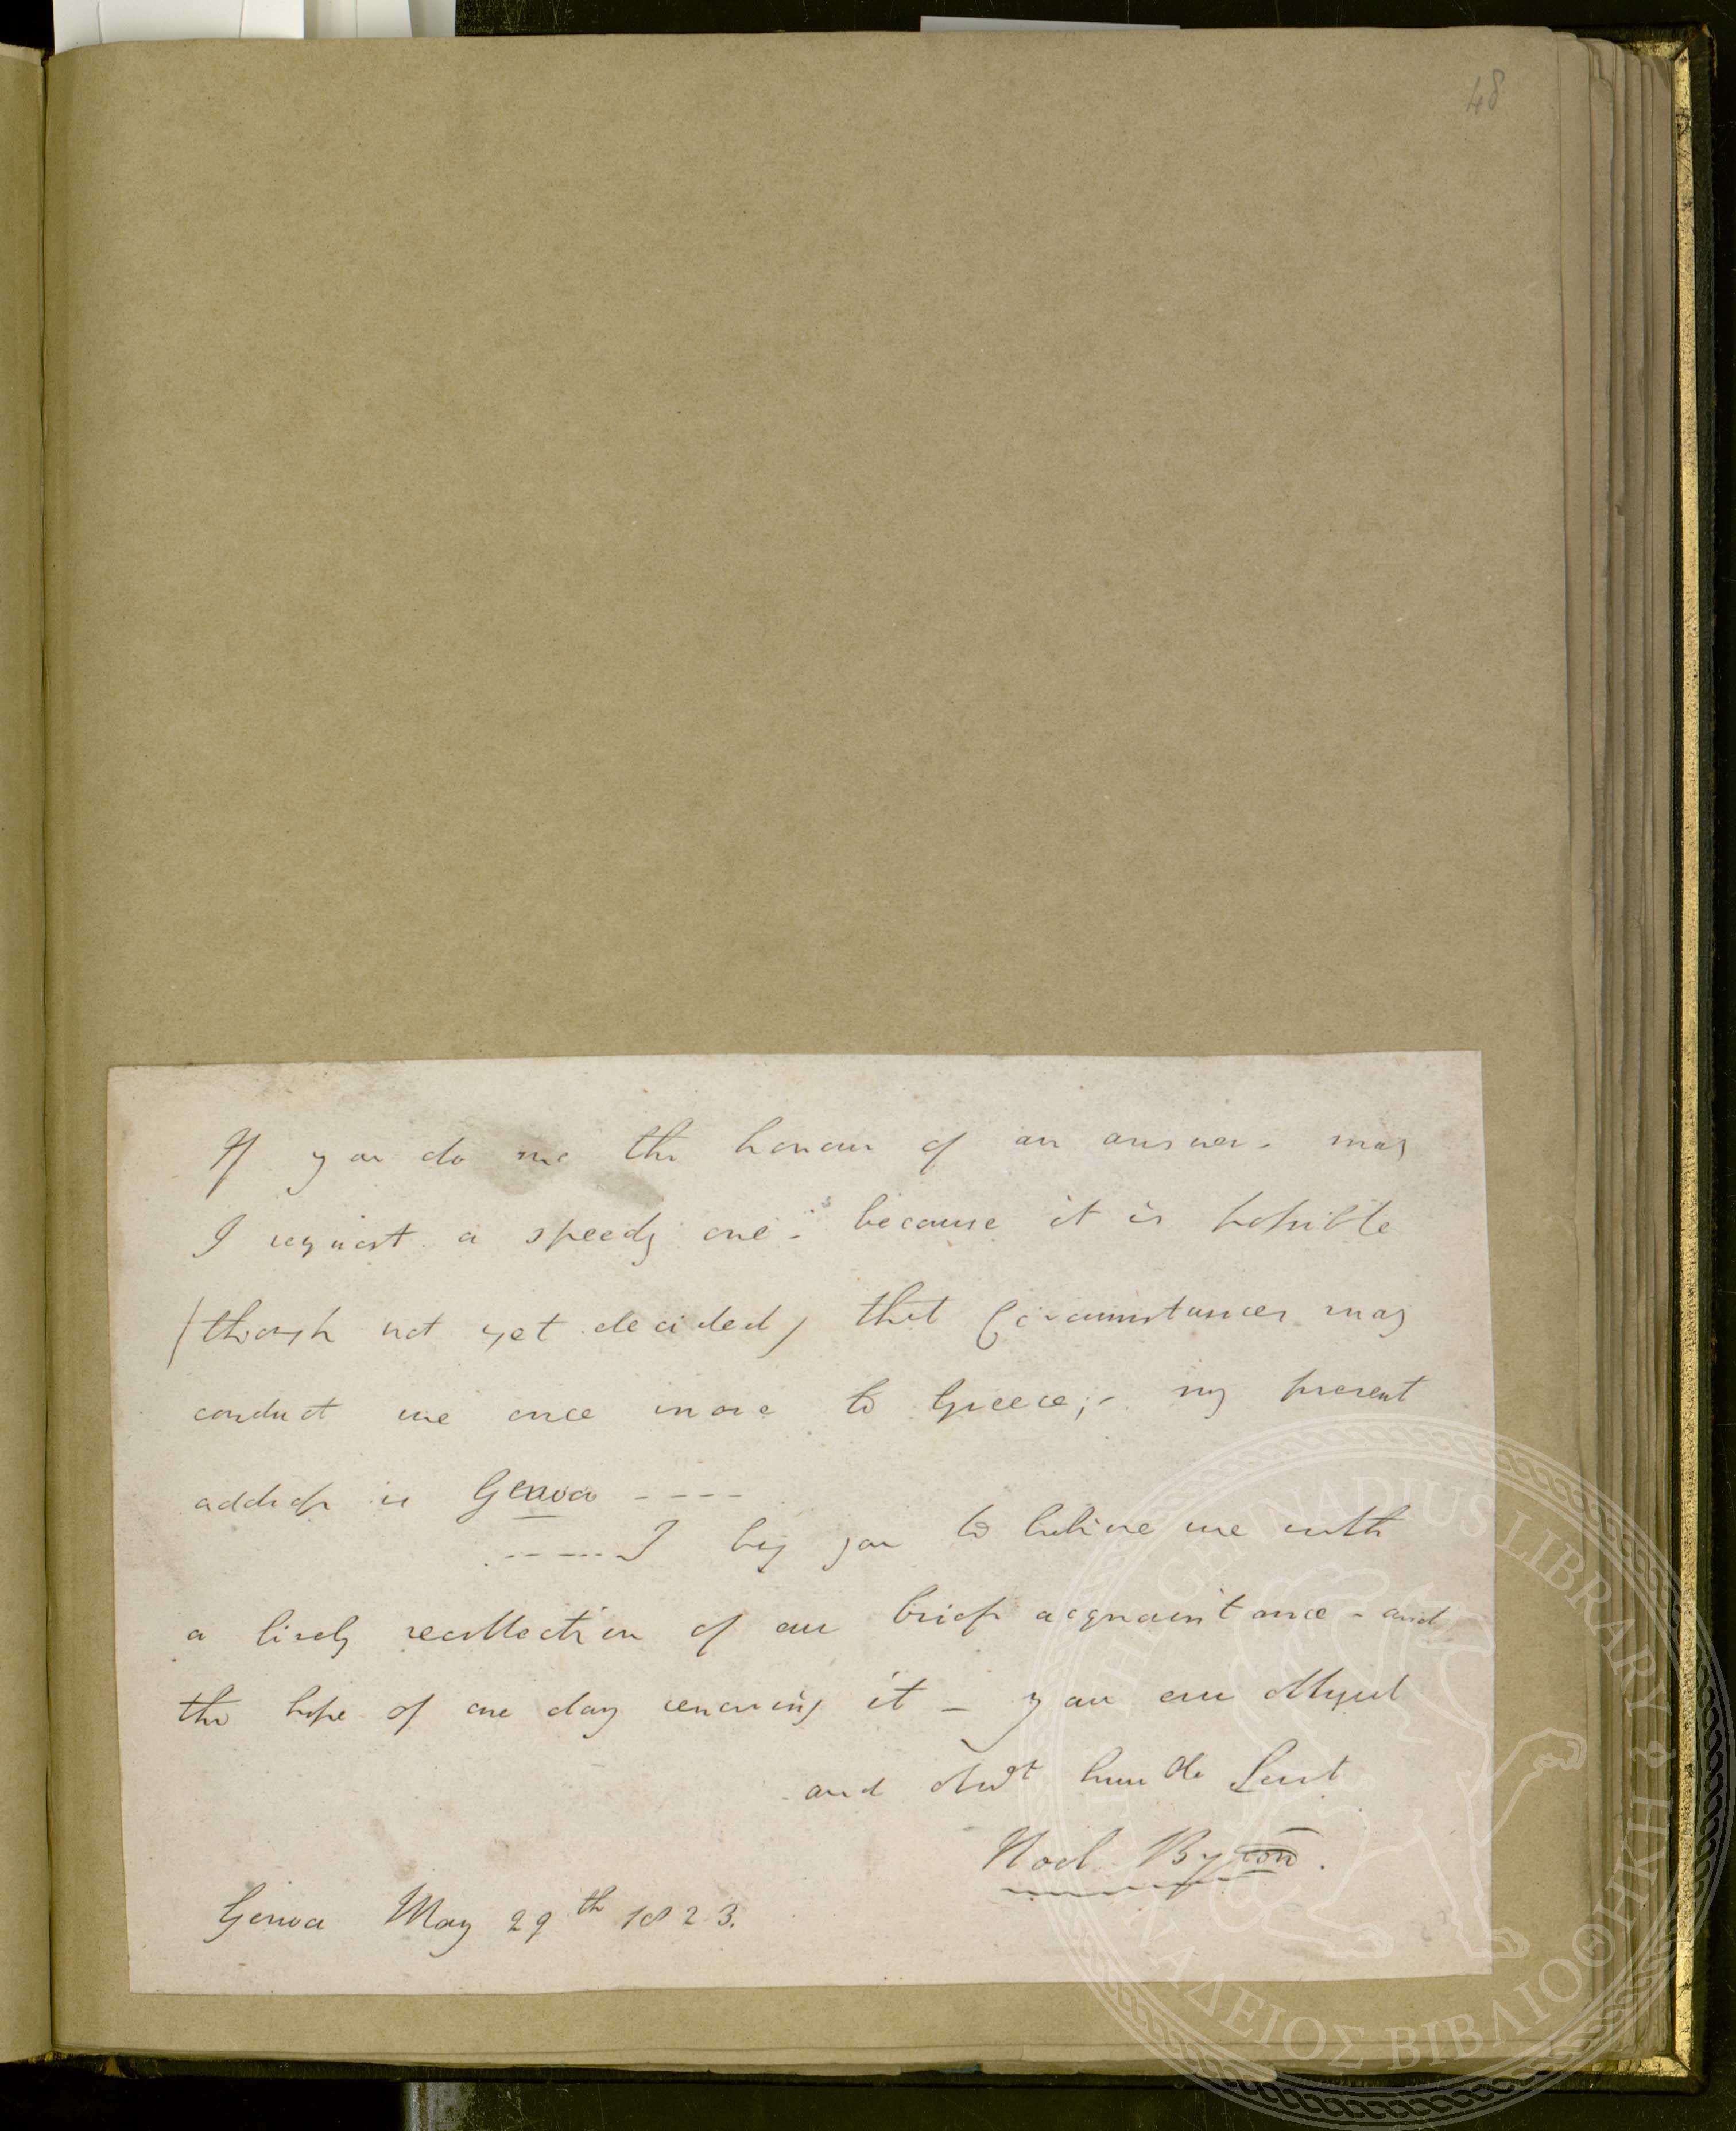 48
If you do me the honour of an answer - may
I request a speedy one - because it is possible
(though not yet decided) that Circumstances may
conduct me once more to Greece; - my present
address is Genoa - - - -
- - - - - I beg you to believe me with
a lively recollection of our brief acquaintance - and
the hope of one day renewing it - your ever obliged
and obed.t humble Servt
Noel Byron.
Genoa May 29th 1823.
THE GENNADIUS LIBRARY
ΓΕΝΝΑΔΕΙΟΣ ΒΙΒΛΙΟΘΗΚΗ